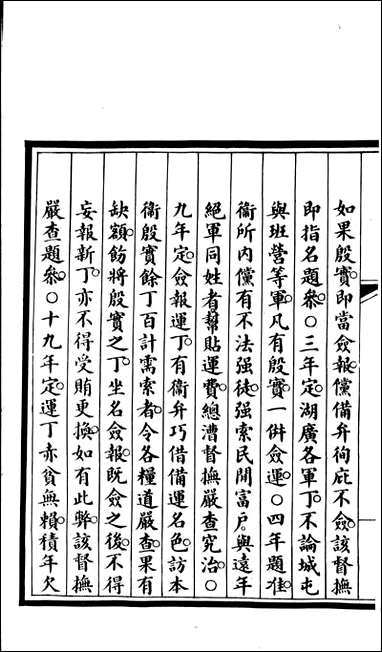 如果殷實即當僉報儻備弁徇庇不僉該督撫
即指名題參○三年定湖廣各軍丁不論城屯
與班營等軍凡有殷實一併僉運○四年題准
衞所内儻有不法强徒强索民間富戸與遠年
絕軍同姓者幫貼運費總漕督撫嚴查究治○
九年定僉報運丁有衞弁巧借備運名色訪本
衞殷實餘丁百計需索者令各糧道嚴查果有
缺額飭將殷實之丁坐名僉報既僉之後不得
妄報新丁亦不得受賄更換如有此弊該督撫
嚴查題參○十九年定運丁赤貧無賴積年欠